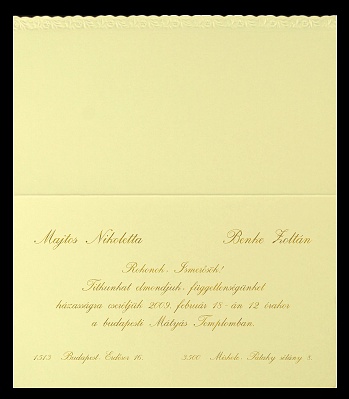 Majtos Nikoletta Benke Zoltán
Rokonok, Ismerősök!
Titkunkat elmondjuk, függetlenségünket
házasságra cseréljük 2009. február 18-án 12 órakor
a budapesti Mátyás Templomban.
1513 Budapest, Erdősor 16. 3500 Miskolc, Pálnky sétány 8.